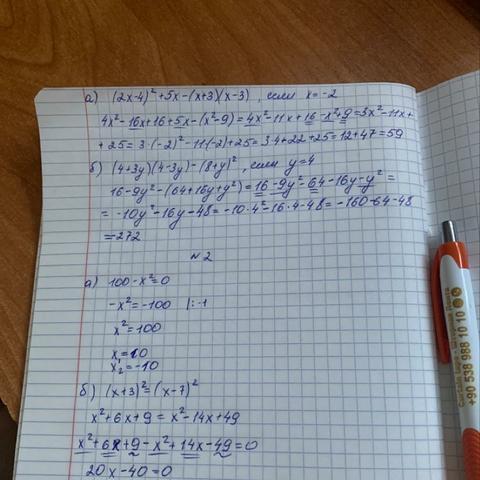 а) (2x-4)²+5x-(x+3)(x-3), если x=-2
4x²-16x+16+5x-(x²-9)=4x²-11x+16-x²+9=3x²-11x+
+25=3·(-2)²-11·(-2)+25=3·4+22+25=12+47=59
б) (4+3y)(4-3y)-(8+y)², если y=4
16-9y²-(64+16y+y²)=16-9y²-64-16y-y²=
=-10y²-16y-48=-10·4²-16·4-48=-160-64-48
=-272
№2
а) 100-x²=0
-x²=-100 |:-1
x²=100
x₁=10
x₂=-10
б) (x+3)²=(x-7)²
x²+6x+9=x²-14x+49
x²+6x+9-x²+14x-49=0
20x-40=0
+90 538 988 10 10